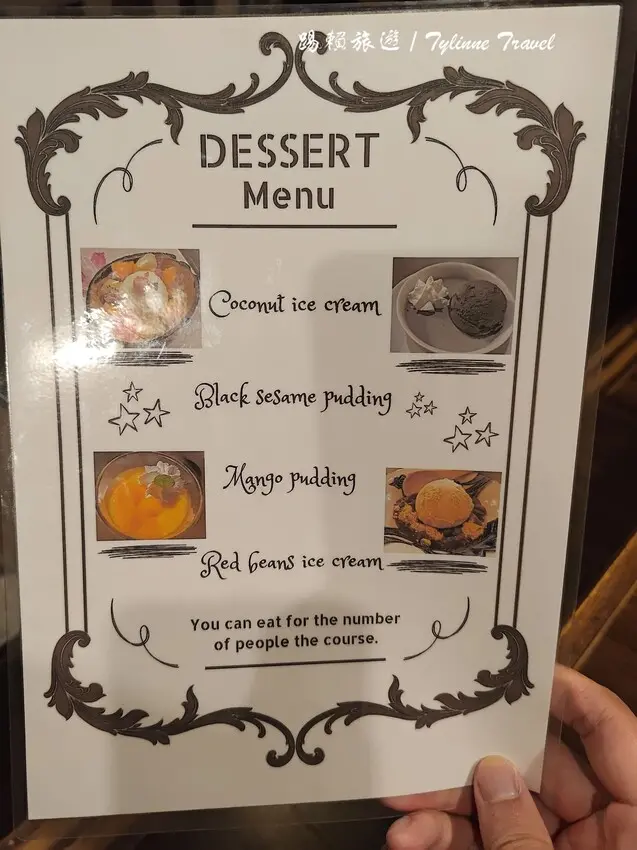 踢賴旅遊 / Tylinne Travel
DESSERT
Menu
Coconut ice cream
Black sesame pudding
Mango pudding
Red beans ice cream
You can eat for the number
of people the course.